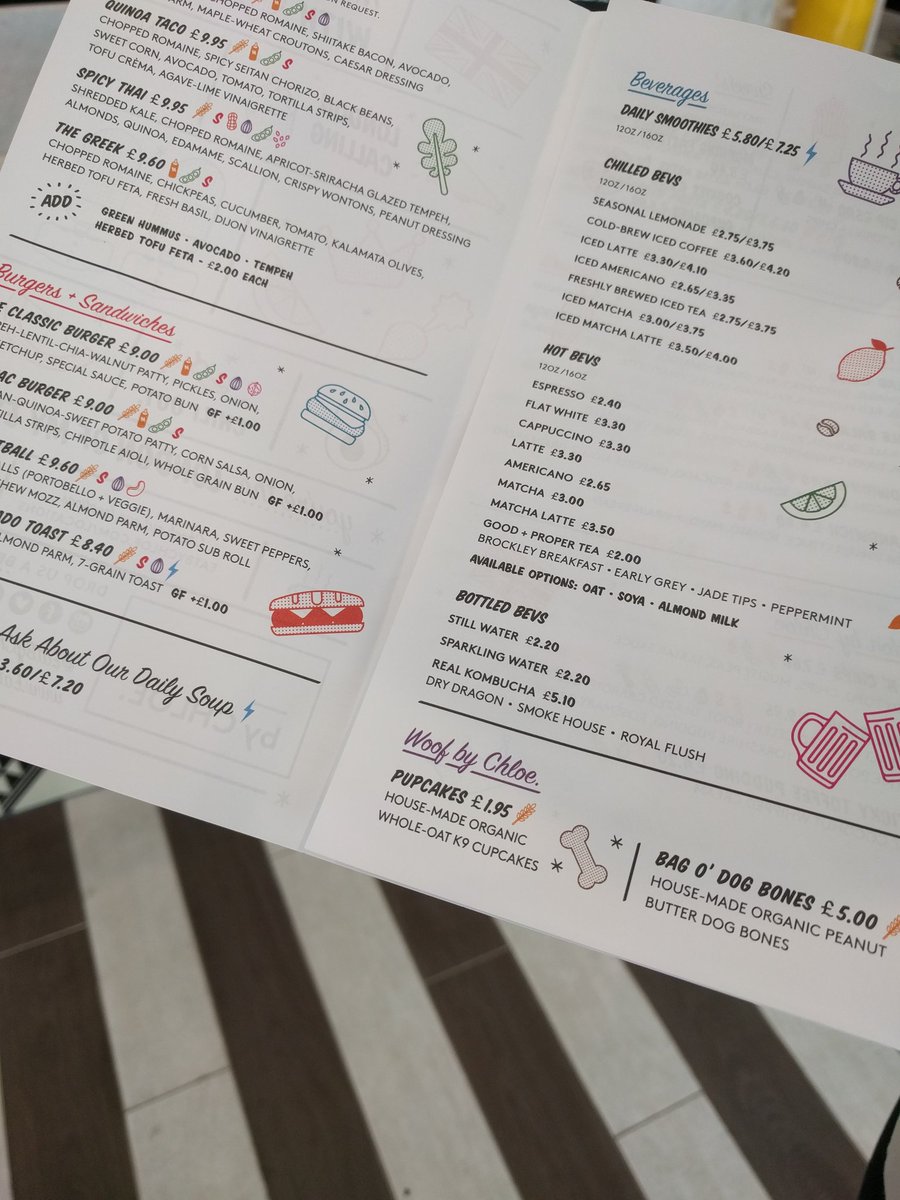 EN REQUEST.
CHOPPED ROMAINE, SHIITAKE BACON, AVOCADO,
PARM, MAPLE-WHEAT CROUTONS, CAESAR DRESSING
QUINOA TACO £9.95
CHOPPED ROMAINE, SPICY SEITAN CHORIZO, BLACK BEANS,
SWEET CORN, AVOCADO, TOMATO, TORTILLA STRIPS,
TOFU CRÉMA, AGAVE-LIME VINAIGRETTE
SPICY THAI £9.95
SHREDDED KALE, CHOPPED ROMAINE, APRICOT-SRIRACHA GLAZED TEMPEH,
ALMONDS, QUINOA, EDAMAME, SCALLION, CRISPY WONTONS, PEANUT DRESSING
THE GREEK £9.60
CHOPPED ROMAINE, CHICKPEAS, CUCUMBER, TOMATO, KALAMATA OLIVES,
HERBED TOFU FETA, FRESH BASIL, DIJON VINAIGRETTE
ADD
GREEN HUMMUS · AVOCADO · TEMPEH
HERBED TOFU FETA - £2.00 EACH
Burgers + Sandwiches
E CLASSIC BURGER £9.00
PEH-LENTIL-CHIA-WALNUT PATTY, PICKLES, ONION,
ETCHUP, SPECIAL SAUCE, POTATO BUN GF +£1.00
AC BURGER £9.00
AN-QUINOA-SWEET POTATO PATTY, CORN SALSA, ONION,
TILLA STRIPS, CHIPOTLE AIOLI, WHOLE GRAIN BUN GF +£1.00
TBALL £9.60
ALLS (PORTOBELLO + VEGGIE), MARINARA, SWEET PEPPERS,
HEW MOZZ, ALMOND PARM, POTATO SUB ROLL
ADO TOAST £8.40
ALMOND PARM, 7-GRAIN TOAST GF +£1.00
Ask About Our Daily Soup
3.60/£7.20
Beverages
DAILY SMOOTHIES £5.80/£7.25
12OZ/16OZ
CHILLED BEVS
12OZ/16OZ
SEASONAL LEMONADE £2.75/£3.75
COLD-BREW ICED COFFEE £3.60/£4.20
ICED LATTE £3.30/£4.10
ICED AMERICANO £2.65/£3.35
FRESHLY BREWED ICED TEA £2.75/£3.75
ICED MATCHA £3.00/£3.75
ICED MATCHA LATTE £3.50/£4.00
HOT BEVS
12OZ/16OZ
ESPRESSO £2.40
FLAT WHITE £3.30
CAPPUCCINO £3.30
LATTE £3.30
AMERICANO £2.65
MATCHA £3.00
MATCHA LATTE £3.50
GOOD + PROPER TEA £2.00
BROCKLEY BREAKFAST · EARLY GREY · JADE TIPS · PEPPERMINT
AVAILABLE OPTIONS: OAT · SOYA · ALMOND MILK
BOTTLED BEVS
STILL WATER £2.20
SPARKLING WATER £2.20
REAL KOMBUCHA £5.10
DRY DRAGON · SMOKE HOUSE · ROYAL FLUSH
Woof by Chloe.
PUPCAKES £1.95
HOUSE-MADE ORGANIC
WHOLE-OAT K9 CUPCAKES
BAG O' DOG BONES £5.00
HOUSE-MADE ORGANIC PEANUT
BUTTER DOG BONES